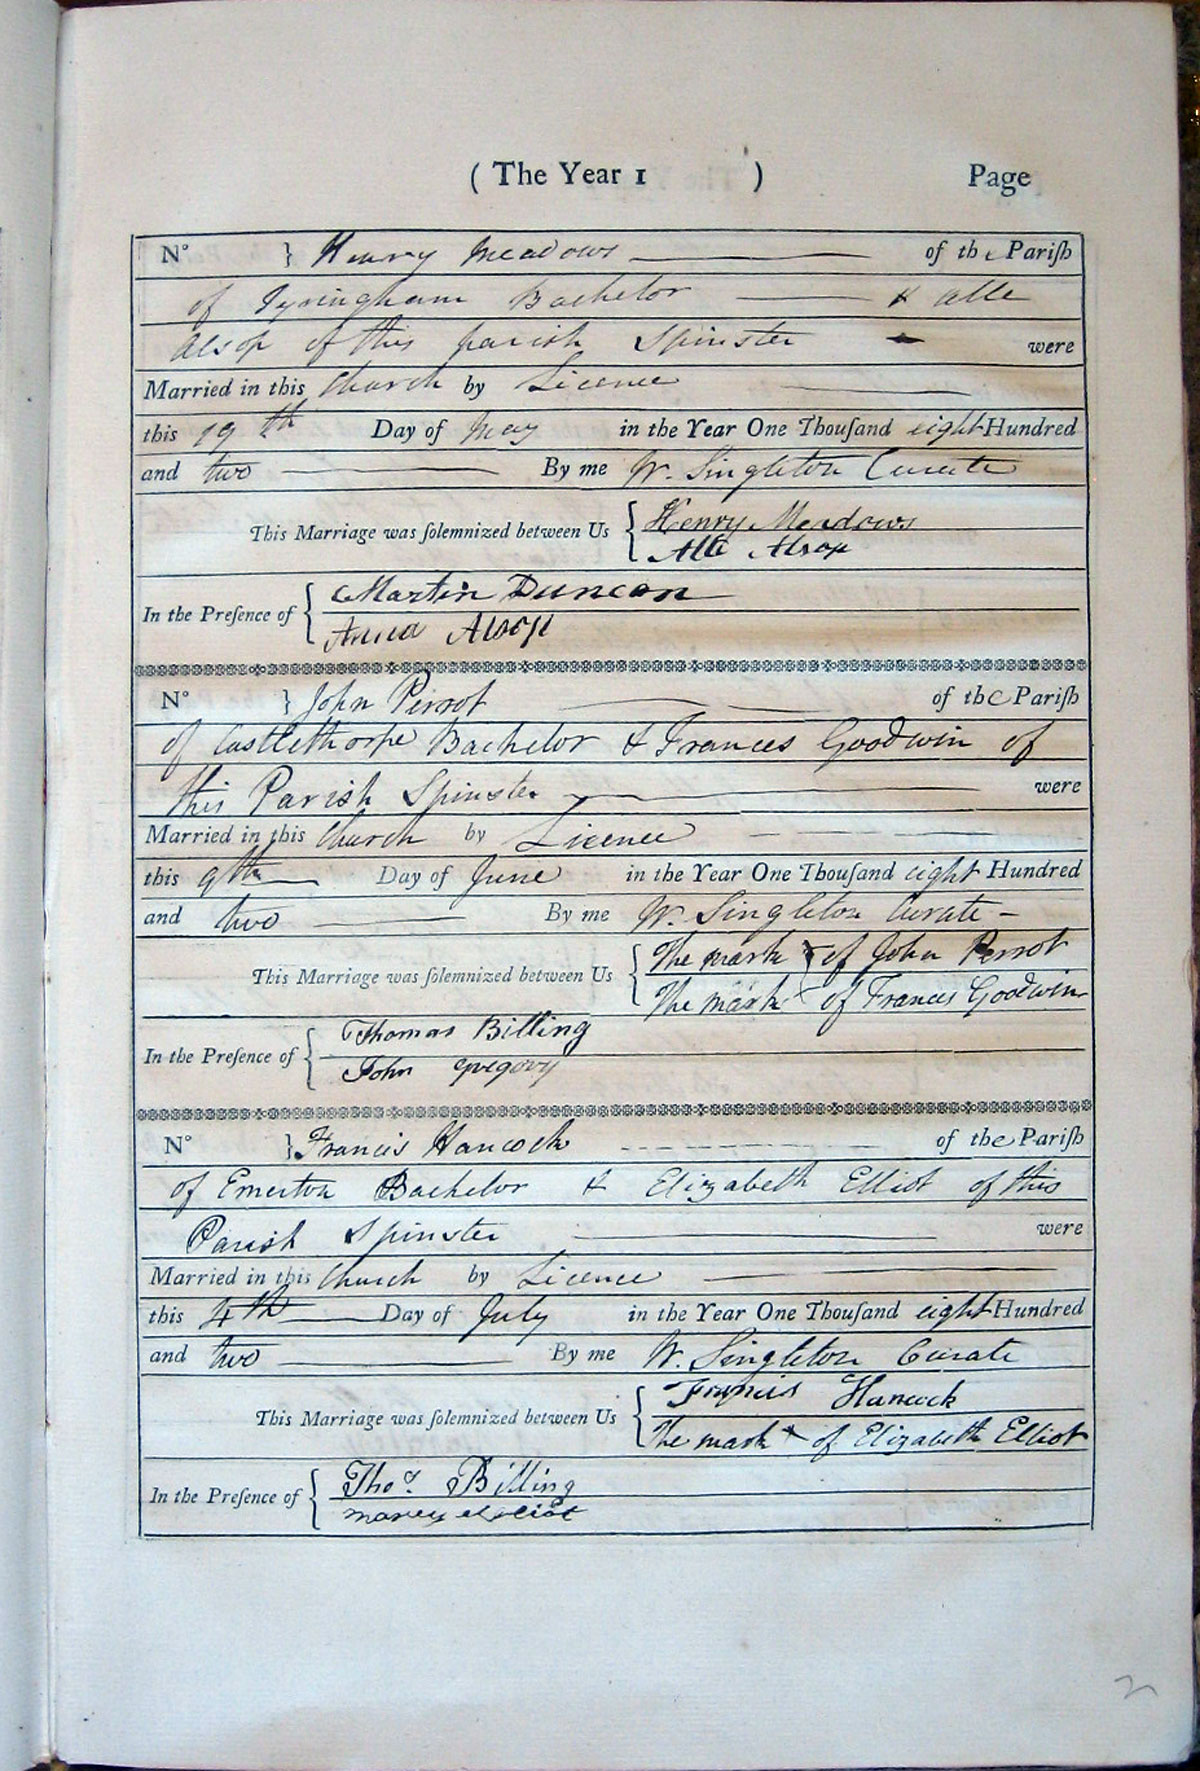 ( The Year 1 ) Page
N° } Henry Meadows of the Pariſh
of Tyringham Bachelor & Alle
Alsop of this parish Spinster were
Married in this Church by Licence
this 19th Day of May in the Year One Thouſand eight Hundred
and two By me W. Singleton Curate
This Marriage was ſolemnized between Us { Henry Meadows
Alle Alsop
In the Preſence of { Martin Duncan
Anna Alsop
N° } John Perrot of the Pariſh
of Castlethorpe Bachelor & Frances Goodwin of
this Parish Spinster were
Married in this Church by Licence
this 9th Day of June in the Year One Thouſand eight Hundred
and two By me W. Singleton Curate
This Marriage was ſolemnized between Us { The mark x of John Perrot
The mark x of Frances Goodwin
In the Preſence of { Thomas Billing
John Gregory
N° } Francis Hancock of the Pariſh
of Emerton Bachelor & Elizabeth Elliot of this
Parish Spinster were
Married in this Church by Licence
this 4th Day of July in the Year One Thouſand eight Hundred
and two By me W. Singleton Curate
This Marriage was ſolemnized between Us { Francis Hancock
The mark x of Elizabeth Elliot
In the Preſence of { Thos. Billing
2